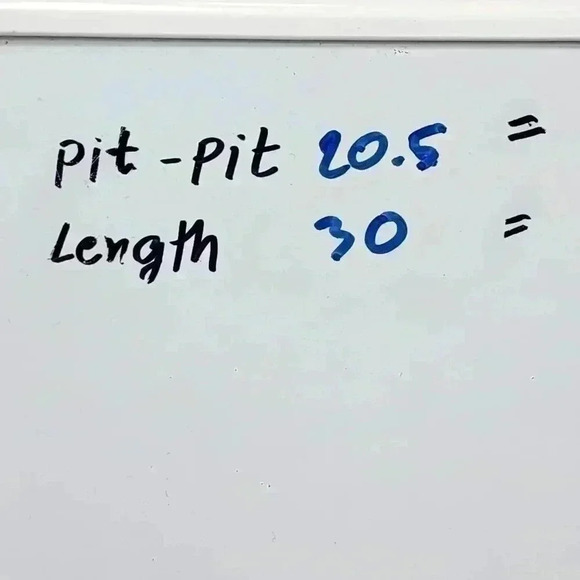 pit-pit 20.5 =
Length 30 =